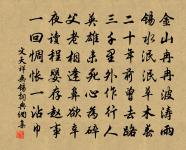 金山冉冉波濤雨
錫水泯泯草木春
二十年前曾去路
三千里外作行人
英雄未死心為碎
父老相逢鼻欲辛
夜讀程嬰存趙事
一回惆悵一沾巾
文天祥無錫詞典網書